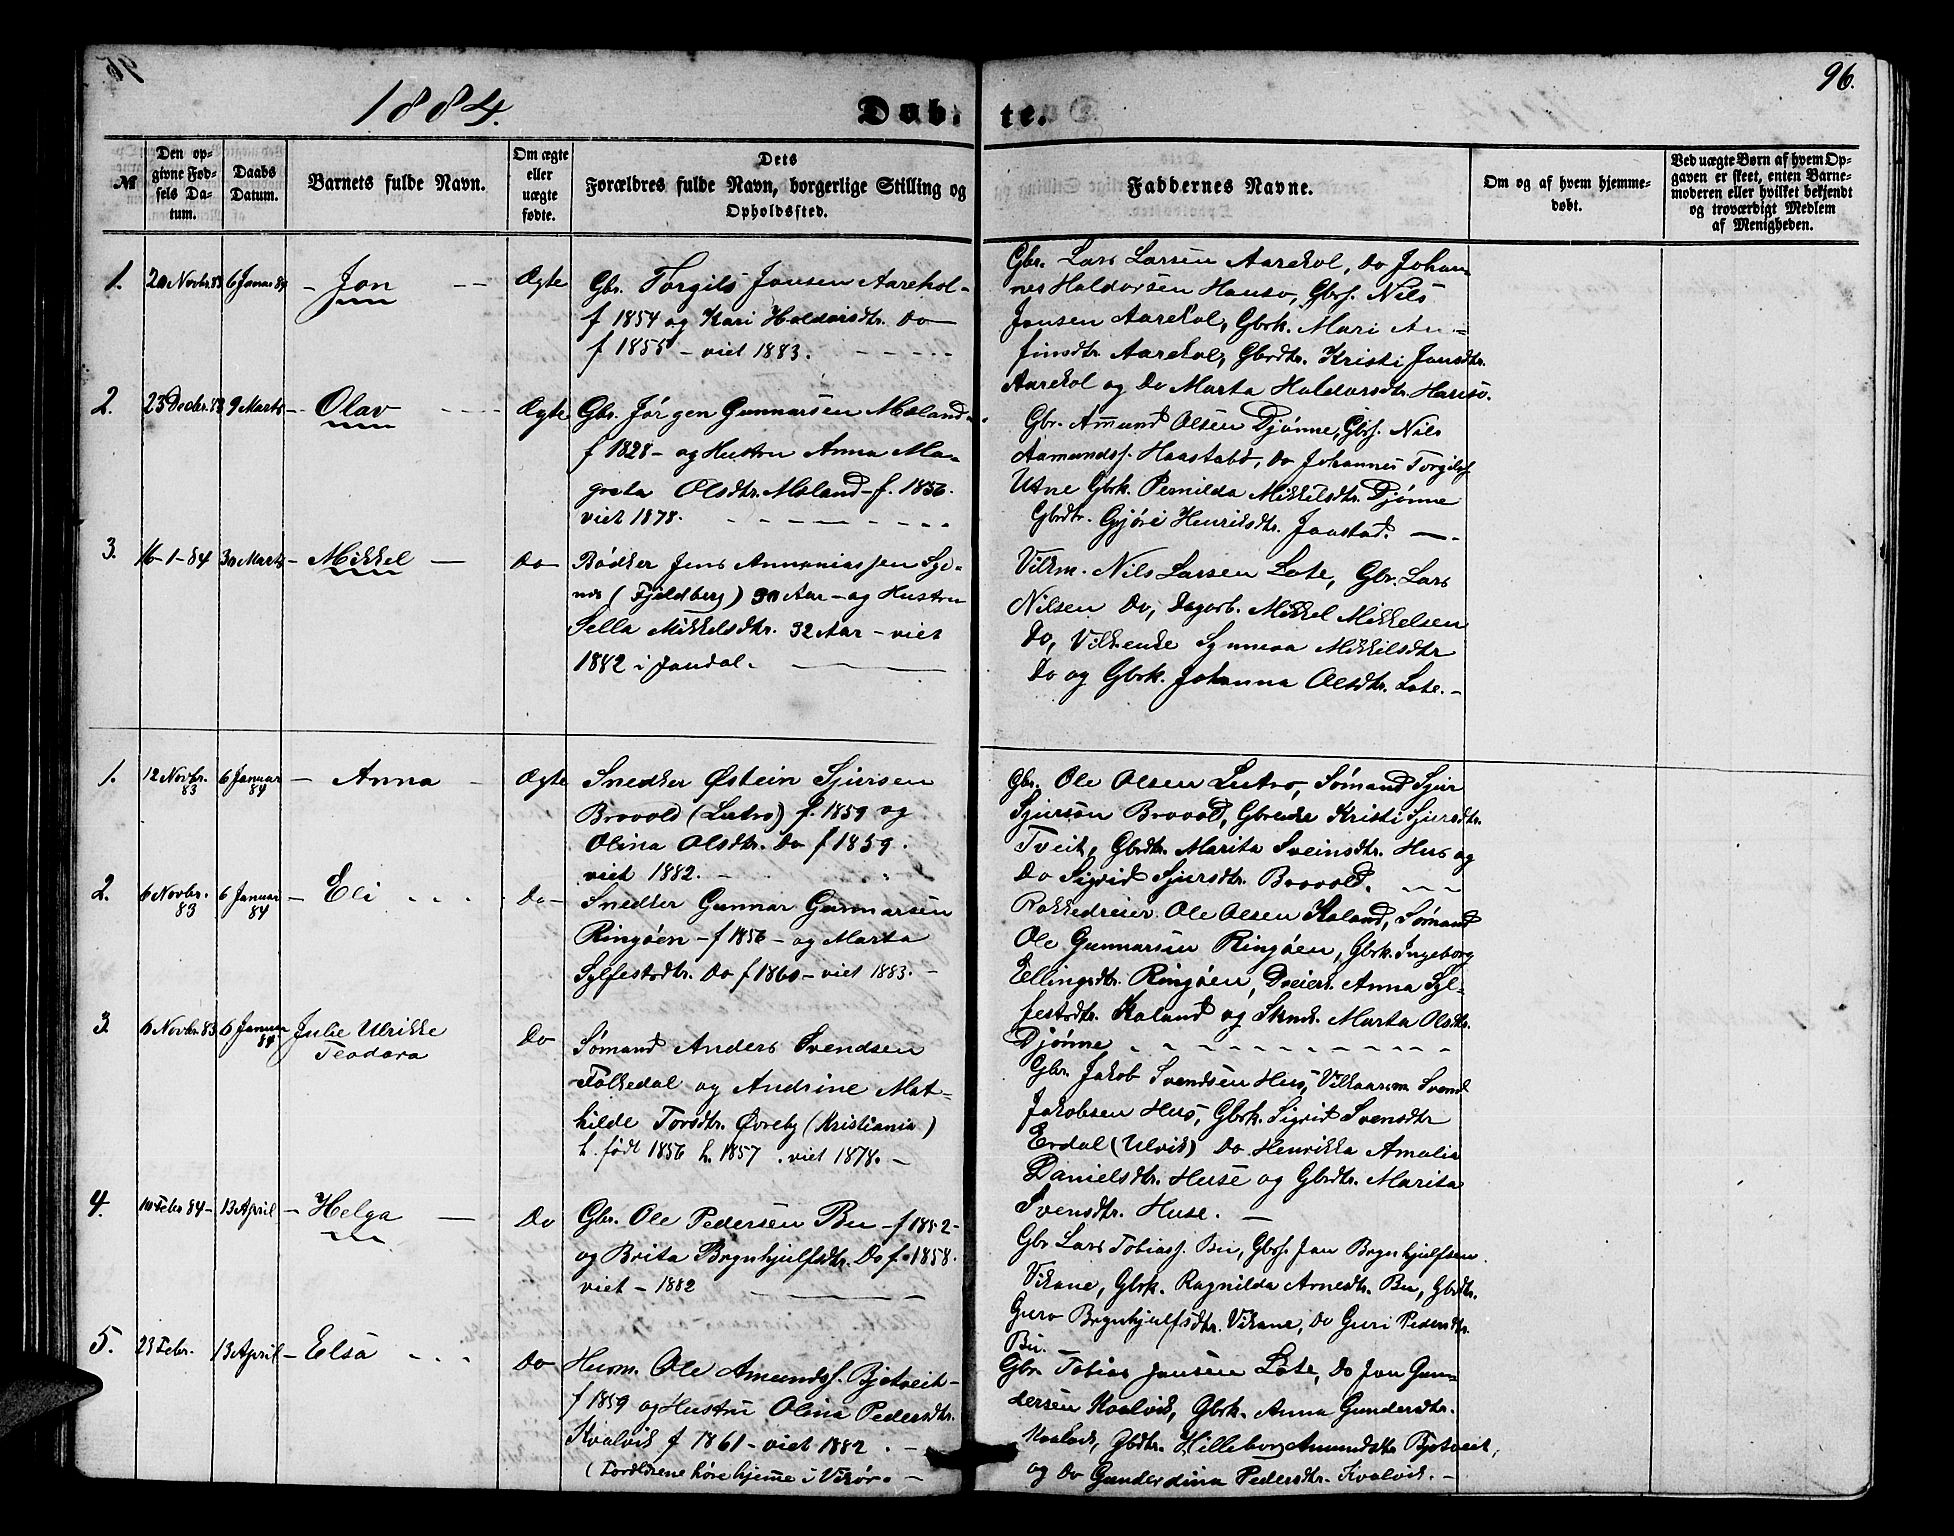 96.
1884.
Døbte.
№
Den op-
givne Fød-
sels Da-
tum.
Daabs
Datum.
Barnets fulde Navn.
Om ægte
eller
uægte
fødte.
Dets
Forældres fulde Navn, borgerlige Stilling og
Opholdssted.
Faddernes Navne.
Om og af hvem hjemme-
døbt.
Ved uægte Børn af hvem Op-
gaven er skeet, enten Barne-
moderen eller hvilket bekjendt
og troværdigt Medlem
af Menigheden.
1. 20 Novbr. 83 6 Januar 84 - Jon - - Ægte
Gbr. Torgils Jonsen Aarekol-
f 1854 og Kari Haldorsdtr. Do -
f 1855 - viet 1883.
Gbr. Lars Larsen Aarekol, Do Johan-
nes Haldorsen Hauso, Gbrs. Nils
Jonsen Aarekol, Gbrk. Mari An-
finsdtr. Aarekol, Gbrdtr. Kristi Jonsdtr.
Aarekol og Do Marta Haldorsdtr. Hauso.
2. 23 Decbr. 83 9 Marts - Olav - Ægte
Gbr. Jørgen Gunnarsen Mæland -
f 1828 - og Hustru Anna Ma-
greta Olsdtr. Mæland - f. 1856.
viet 1878.
Gbr. Amund Olsen Djønne, Gbrs. Nils
Aamundss. Haastabø, Do Johannes Torgilss.
Utne Gbrk. Pernilda Mikkelsdtr. Djønne
Gbrdtr. Gjøri Henriksdtr. Jaastad. -
3. 16-1-84 30 Marts - Mikkel - Do -
Bødker Jens Annaniassen
(Fjeldberg) 30 Aar - og Hustru
Sella Mikkelsdtr. 32 Aar - viet
1882 i Jondal.
Vilkm. Nils Larsen Lote, Gbr. Lars
Nilsen Do, Dagarb. Mikkel Mikkelsen
Do, Vilkenke Synneva Mikkelsdtr
Do og Gbrk. Johanna Olsdtr. Lote. -
1. 12 Novbr. 83 6 Januar 84 - Anna - Ægte
Snedker Østein Sjursen
Brovold (Lutro) f. 1859 og
Olina Olsdtr. Do f 1859.
viet 1882.
Gbr. Ole Olsen Lutro, Sømand Sjur
Sjursøn Brovold, Gbrenke Kristi Sjursdtr.
Tveit, Gbrdtr. Marita Sveinsdtr. Hus og
Do Sigrid Sjursdtr. Brovold.
2. 6 Novbr. 83 6 Januar 84 - Eli - Do -
Snedker Gunnar Gunnarsen
Ringøen - f 1856 - og Marta
Sylfestsdtr. Do f 1860 - viet 1883. -
Rokkedreier Ole Olsen Kaland, Sømand
Ole Gunnarsen Ringøen, Gbrk. Ingeborg
Ellingsdtr. Ringøen, Dreiers. Anna Syl-
festsdtr. Kaland og Marta Olsdtr.
Djønne
3. 6 Novbr. 83 6 Januar 84 Julie Ulrikke
Teodora Do
Sømand Anders Svendsen
Folkedal og Andrine Mat-
hilde Torsdtr. Øvreby (Kristiania)
h. født 1856 h. 1857. viet 1878. -
Gbr. Jakob Svendsen Hus, Vilkaarsm. Svend
Jakobsen Hus, Gbrk. Sigrid Svensdtr
Erdal (Ulvik) Do Henrikka Amalia
Danielsdtr. Huse og Gbrdtr. Marita
Svensdtr. Huse. -
4. 10 Febr 84 - 13 April - Helga - Do
Gbr. Ole Pedersen Bu - f 1852 -
og Brita Brynhjulfsdtr. Do f. 1858.
viet - 1882
Gbr Lars Tobiass. Bu, Gbrs. Jon Brynhjulfsen
Vikane, Gbrk. Ragnilda Arnedtr. Bu, Gbrdtr.
Guro Brynhjulfsdtr. Vikane, Do Guri Pedersdtr.
Bu. -
5. 23 Febr. 13 April - Elsa - Do
Husm. Ole Amundss. Bjotveit -
f 1859 og Hustru Olina Pedersdtr.
Kvalvik f 1861 - viet 1882. -
(Forældrene høre hjemme i Vikør. -
Gbr. Tobias Jonsen Lote, Do Jon Gun-
dersen Kvalvik, Gbrk. Anna Gundersdtr.
Kvalvik, Gbdtr. Hilleborg Amundsdtr Bjotveit,
og Do Gunderdina Pedersdtr. Kvalvik. -